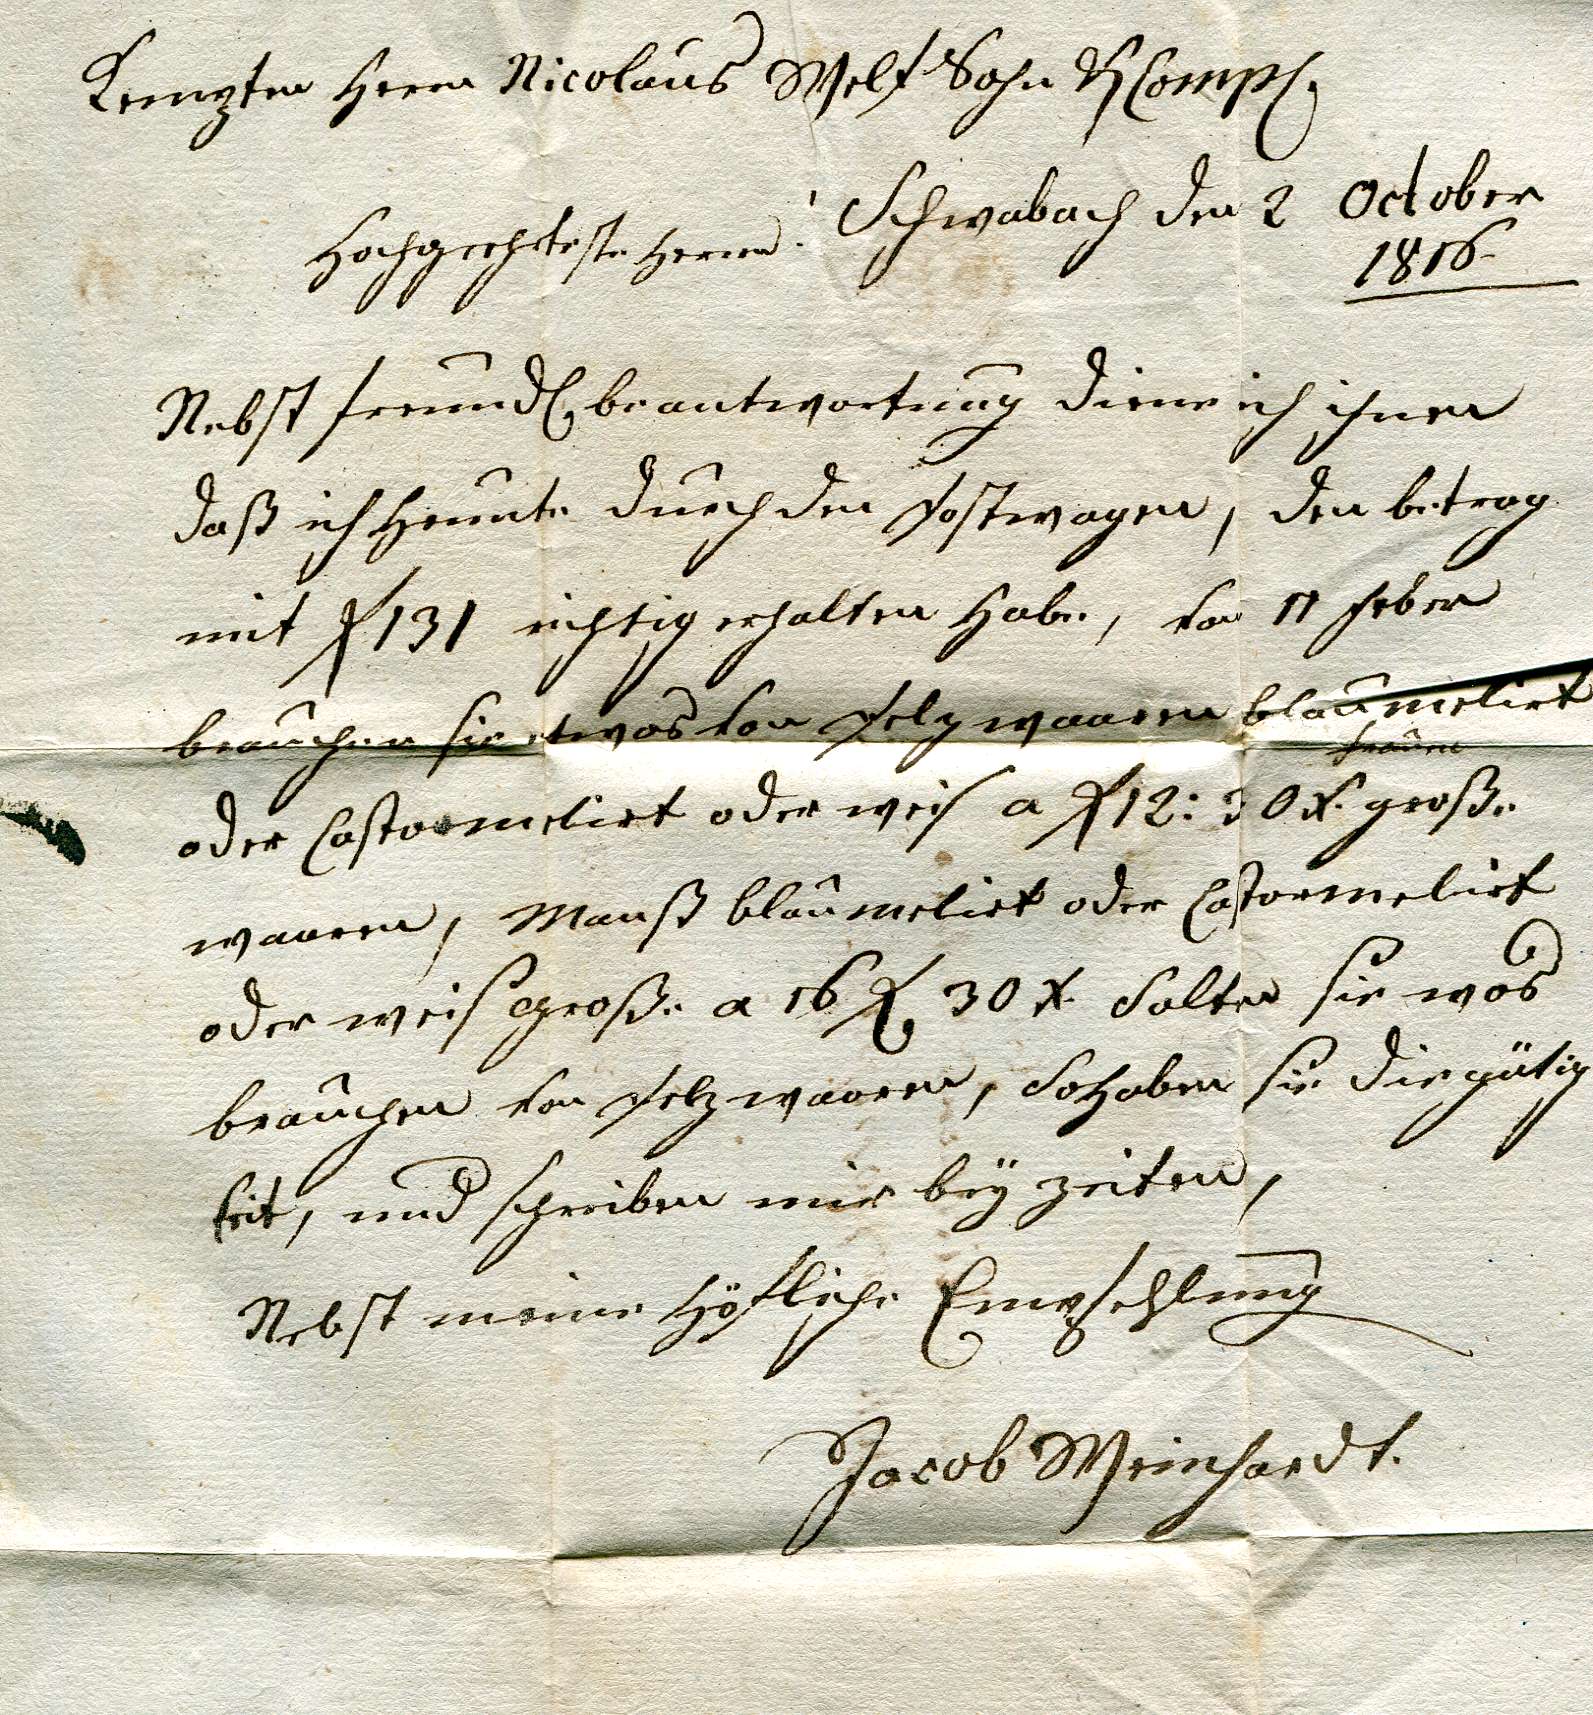 Kempten Herrn Nicolaus Welf Sohn & Comp.
Schwabach den 2 October
1816.
Hochgeehrteste Herrn!
Nebst freundl. beantwortung diene ich ihnen
daß ich Heunte durch den Postwagen, den betrag
mit f 131 richtig erhalten Habe, von 11 Feber
brauchen sie etwas von Pelzwaaren blaumelirt
frauen
oder Castormelirt oder weis a f 12: 30 x. große
waaren, Manß blaumelirt oder Castormelirt
oder weis große a 16 f 30 x. Solten sie was
brauchen von Pelzwaaren, So haben sie die gütig
keit, und schreiben mir bey zeiten,
Nebst meine Höfliche Empfehlung
Jacob Meinhardt.